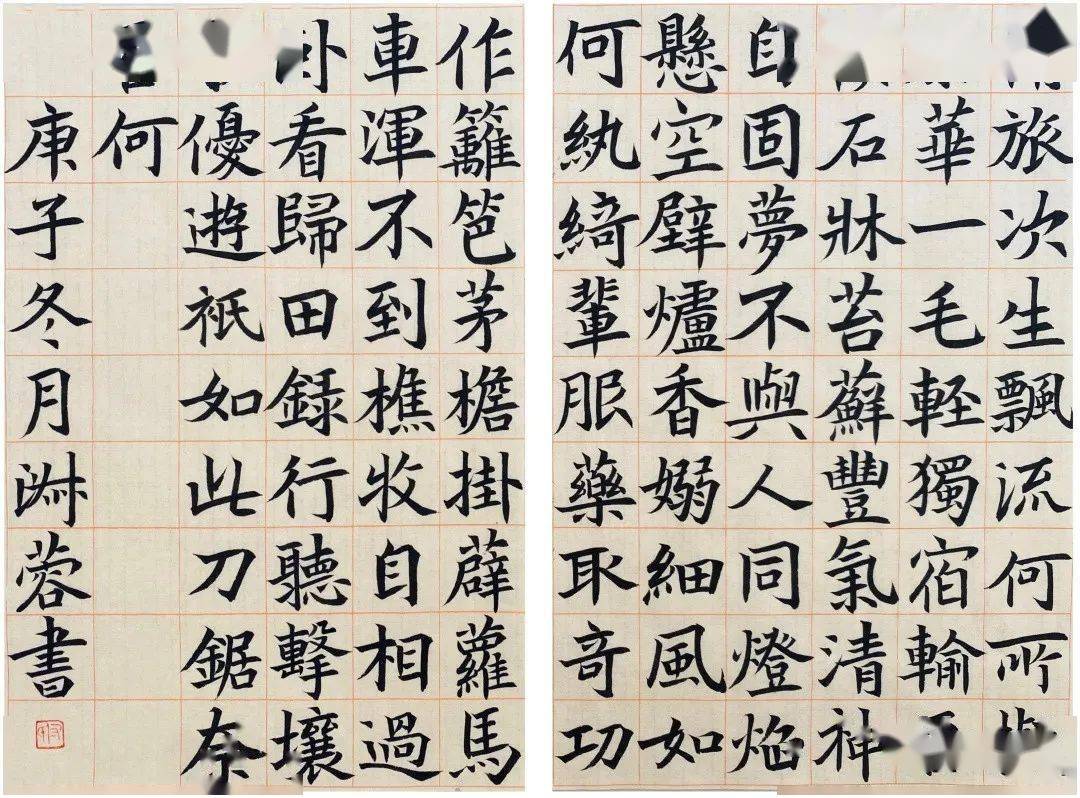 旅次生飄流何所
華一毛輕獨宿輸
石牀苔蘚豐氣清神
自固夢不與人同燈焰
懸空壁爐香嫋細風如
何紈綺輩服藥取奇功
作籬笆茅檐掛薜蘿馬
車渾不到樵牧自相過
看歸田錄行聽擊壤
優遊祇如此刀鋸奈
何
庚子冬月蓉書